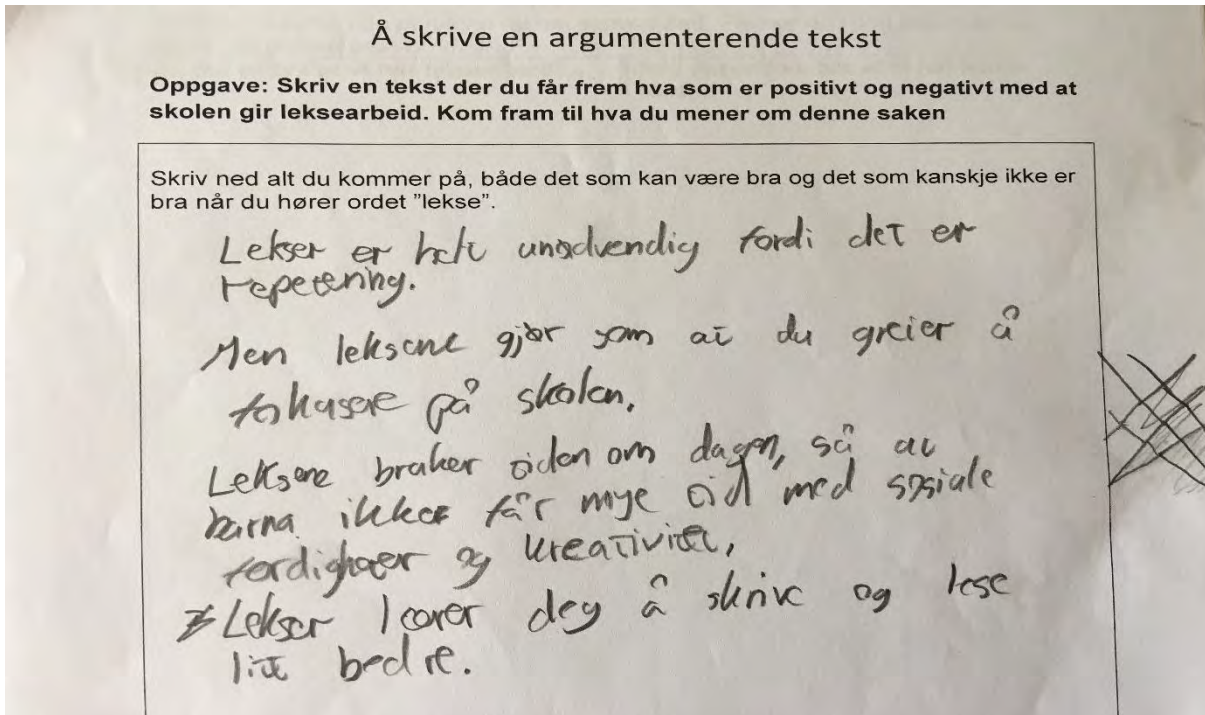 Å skrive en argumenterende tekst
Oppgave: Skriv en tekst der du får frem hva som er positivt og negativt med at
skolen gir leksearbeid. Kom fram til hva du mener om denne saken
Skriv ned alt du kommer på, både det som kan være bra og det som kanskje ikke er
bra når du hører ordet "lekse".
Lekser er helt unødvendig fordi det er
repetering.
Men leksene gjør som at du greier å
fokusere på skolen.
Leksene bruker tiden om dagen, så at
barna ikke får mye tid med sosiale
ferdigheter og kreativitet,
Lekser lærer deg å skrive og lese
litt bedre.